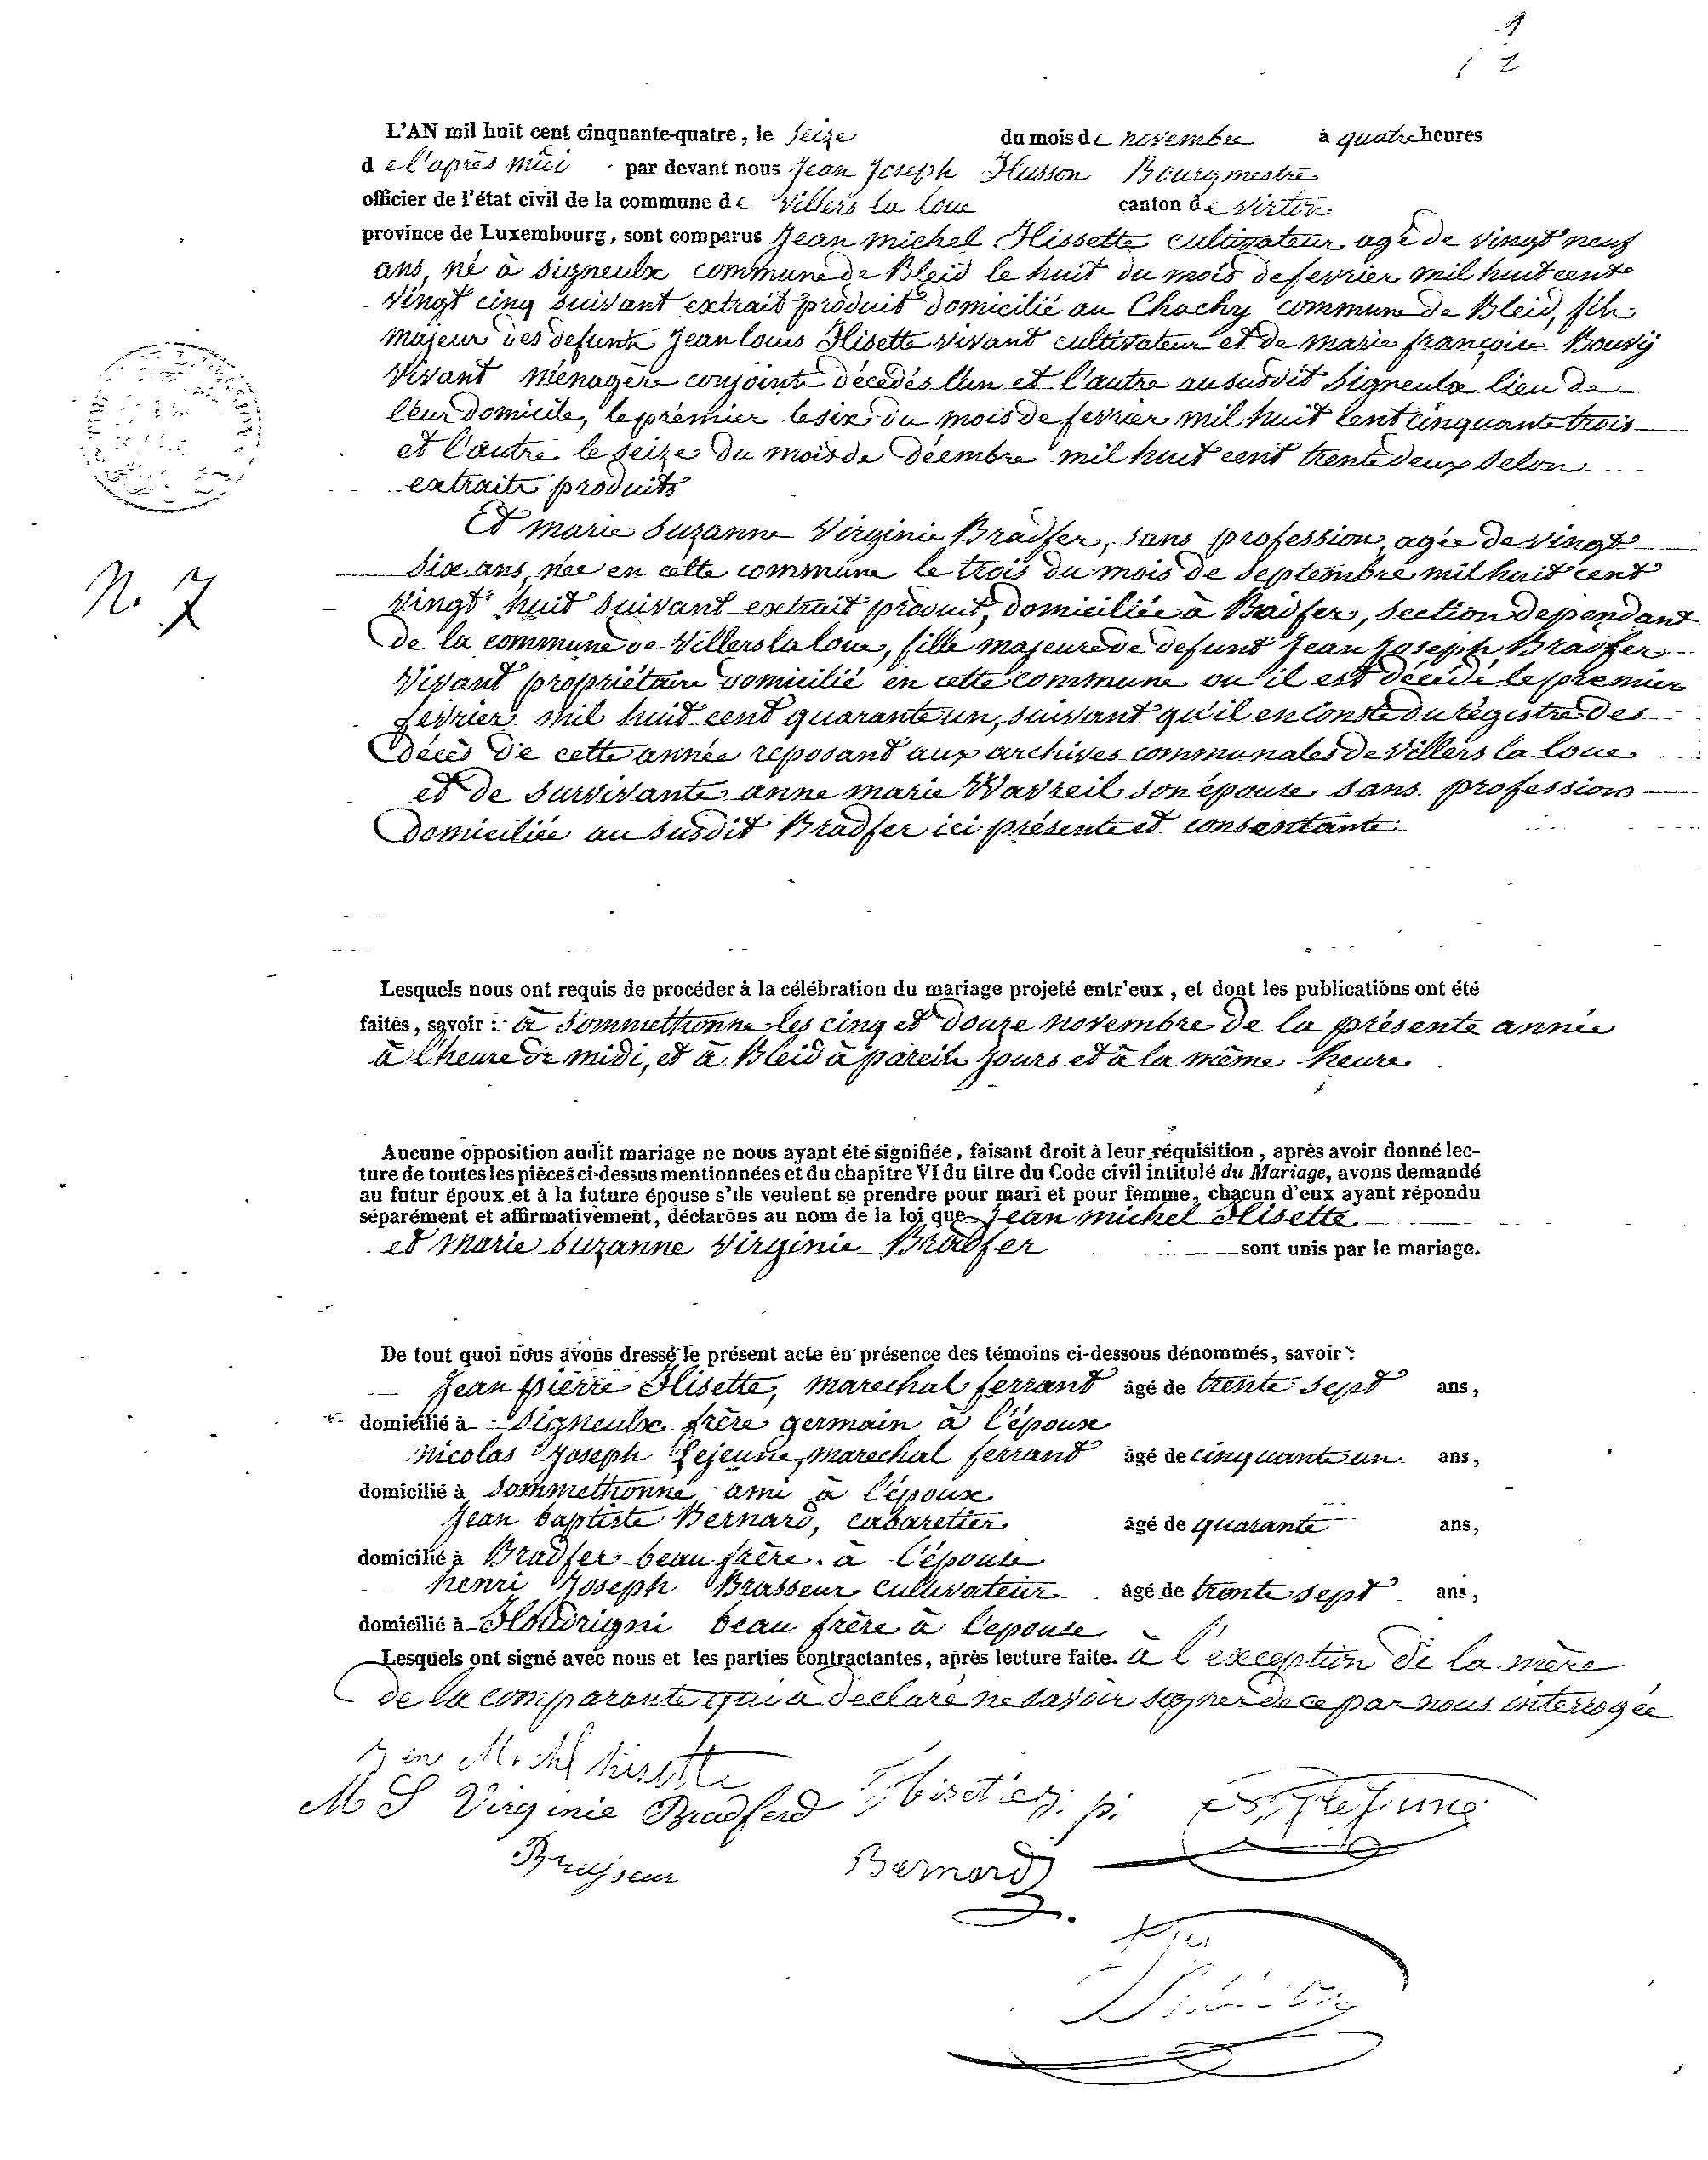 1
2
L'AN mil huit cent cinquante-quatre, le seize du mois de novembre à quatre heures
de l'après midi par devant nous Jean Joseph Husson Bourgmestre
officier de l'état civil de la commune de Villers la loue canton de Virton
province de Luxembourg, sont comparus Jean michel Hissette cultivateur agé de vingt neuf
ans, né à Signeulx commune de Bleid le huit du mois de fevrier mil huit cent
vingt cinq suivant extrait produit domicilié au Chachy commune de Bleid, fils
majeur des defunts Jean louis Hisette vivant cultivateur et de marie françoise Bouvÿ
vivant ménagère conjoints décédés l'un et l'autre au susdit Signeulx lieu de
leur domicile, le prémier le six du mois de fevrier mil huit cent cinquante trois
et l'autre le seize du mois de décembre mil huit cent trente deux selon
extraits produits
Et marie Suzanne Virginie Bradfer, sans profession, agée de vingt
six ans, née en cette commune le trois du mois de septembre mil huit cent
vingt huit suivant extrait produit, domiciliée à Bradfer, section dependant
de la commune de Villers la loue, fille majeure de defunt Jean Joseph Bradfer
vivant propriétaire domicilié en cette commune ou il est décédé le premier
fevrier mil huit cent quarante un, suivant qu'il en conste du régistre des
décès de cette année reposant aux archives communales de Villers la loue
et de survivante anne marie Wavreil son épouse sans profession
domiciliée au susdit Bradfer ici présente et consentante
N. 7
Lesquels nous ont requis de procéder à la célébration du mariage projeté entr'eux, et dont les publications ont été
faites, savoir : à Sommethonne les cinq et douze novembre de la présente année
à l'heure de midi, et à Bleid à pareils jours et à la même heure
Aucune opposition audit mariage ne nous ayant été signifiée, faisant droit à leur réquisition, après avoir donné lec-
ture de toutes les pièces ci-dessus mentionnées et du chapitre VI du titre du Code civil intitulé du Mariage, avons demandé
au futur époux et à la future épouse s'ils veulent se prendre pour mari et pour femme, chacun d'eux ayant répondu
séparément et affirmativement, déclarons au nom de la loi que Jean michel Hisette
et Marie Suzanne Virginie Bradfer sont unis par le mariage.
De tout quoi nous avons dressé le présent acte en présence des témoins ci-dessous dénommés, savoir :
Jean pierre Hisette, marechal ferrant âgé de trente sept ans,
domicilié à Signeulx frère germain à l'époux
Nicolas Joseph Lejeune, marechal ferrant âgé de cinquante un ans,
domicilié à Sommethonne ami à l'époux
Jean baptiste Bernard, cabaretier âgé de quarante ans,
domicilié à Bradfer beau frère à l'épouse
henri Joseph Brasseur cultivateur âgé de trente sept ans,
domicilié à Houdrigni beau frère à l'epouse
Lesquels ont signé avec nous et les parties contractantes, après lecture faite. à l'exception de la mère
de la comparante qui a declaré ne savoir signer de ce par nous interrogée
hisette
M S Virginie Bradferd hisette j. p. Lejeune
Brasseur Bernard